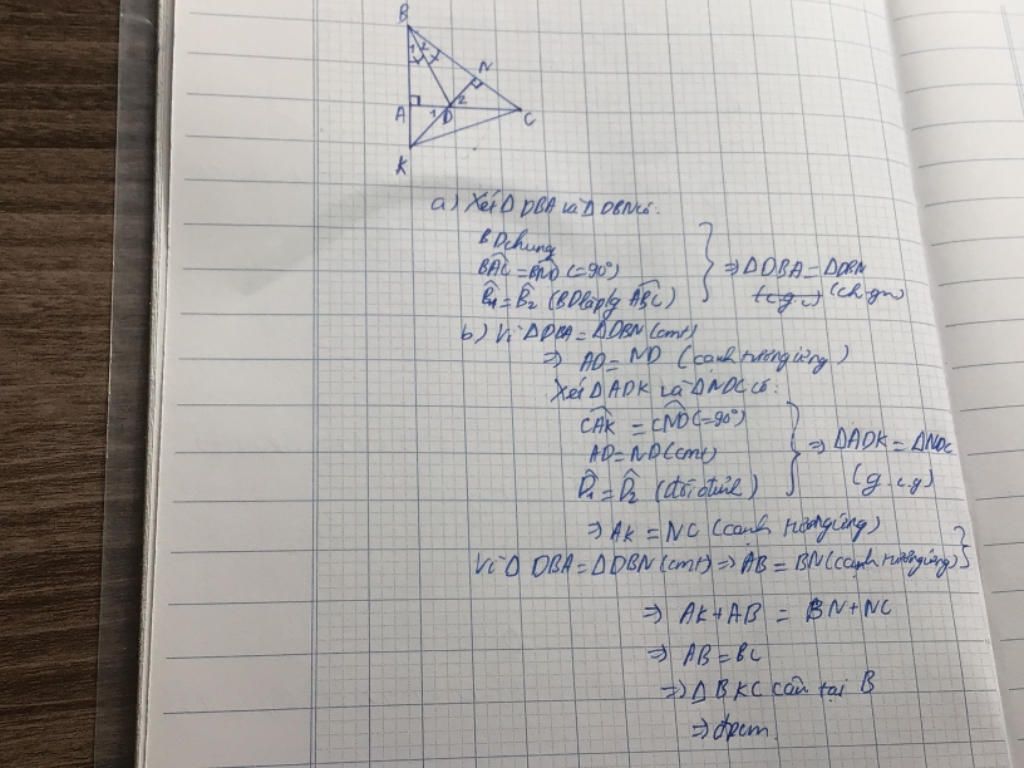 B
1 2
N
A 1 D 2 C
K
a) Xét Δ DBA và Δ DBN có:
BD chung
BAC = BND (=90°)
B1 = B2 (BD là p/g ABC)
⇒ Δ DBA = Δ DBN
(ch-gn)
b) Vì Δ DBA = Δ DBN (cmt)
⇒ AD = ND (cạnh tương ứng)
Xét Δ ADK và Δ NDC có:
CAK = CND (=90°)
AD = ND (cmt)
D1 = D2 (đối đỉnh)
⇒ Δ ADK = Δ NDC
(g.c.g)
⇒ AK = NC (cạnh tương ứng)
Vì Δ DBA = Δ DBN (cmt) ⇒ AB = BN (cạnh tương ứng)
⇒ AK + AB = BN + NC
⇒ AB = BC
⇒ Δ BKC cân tại B
⇒ đpcm